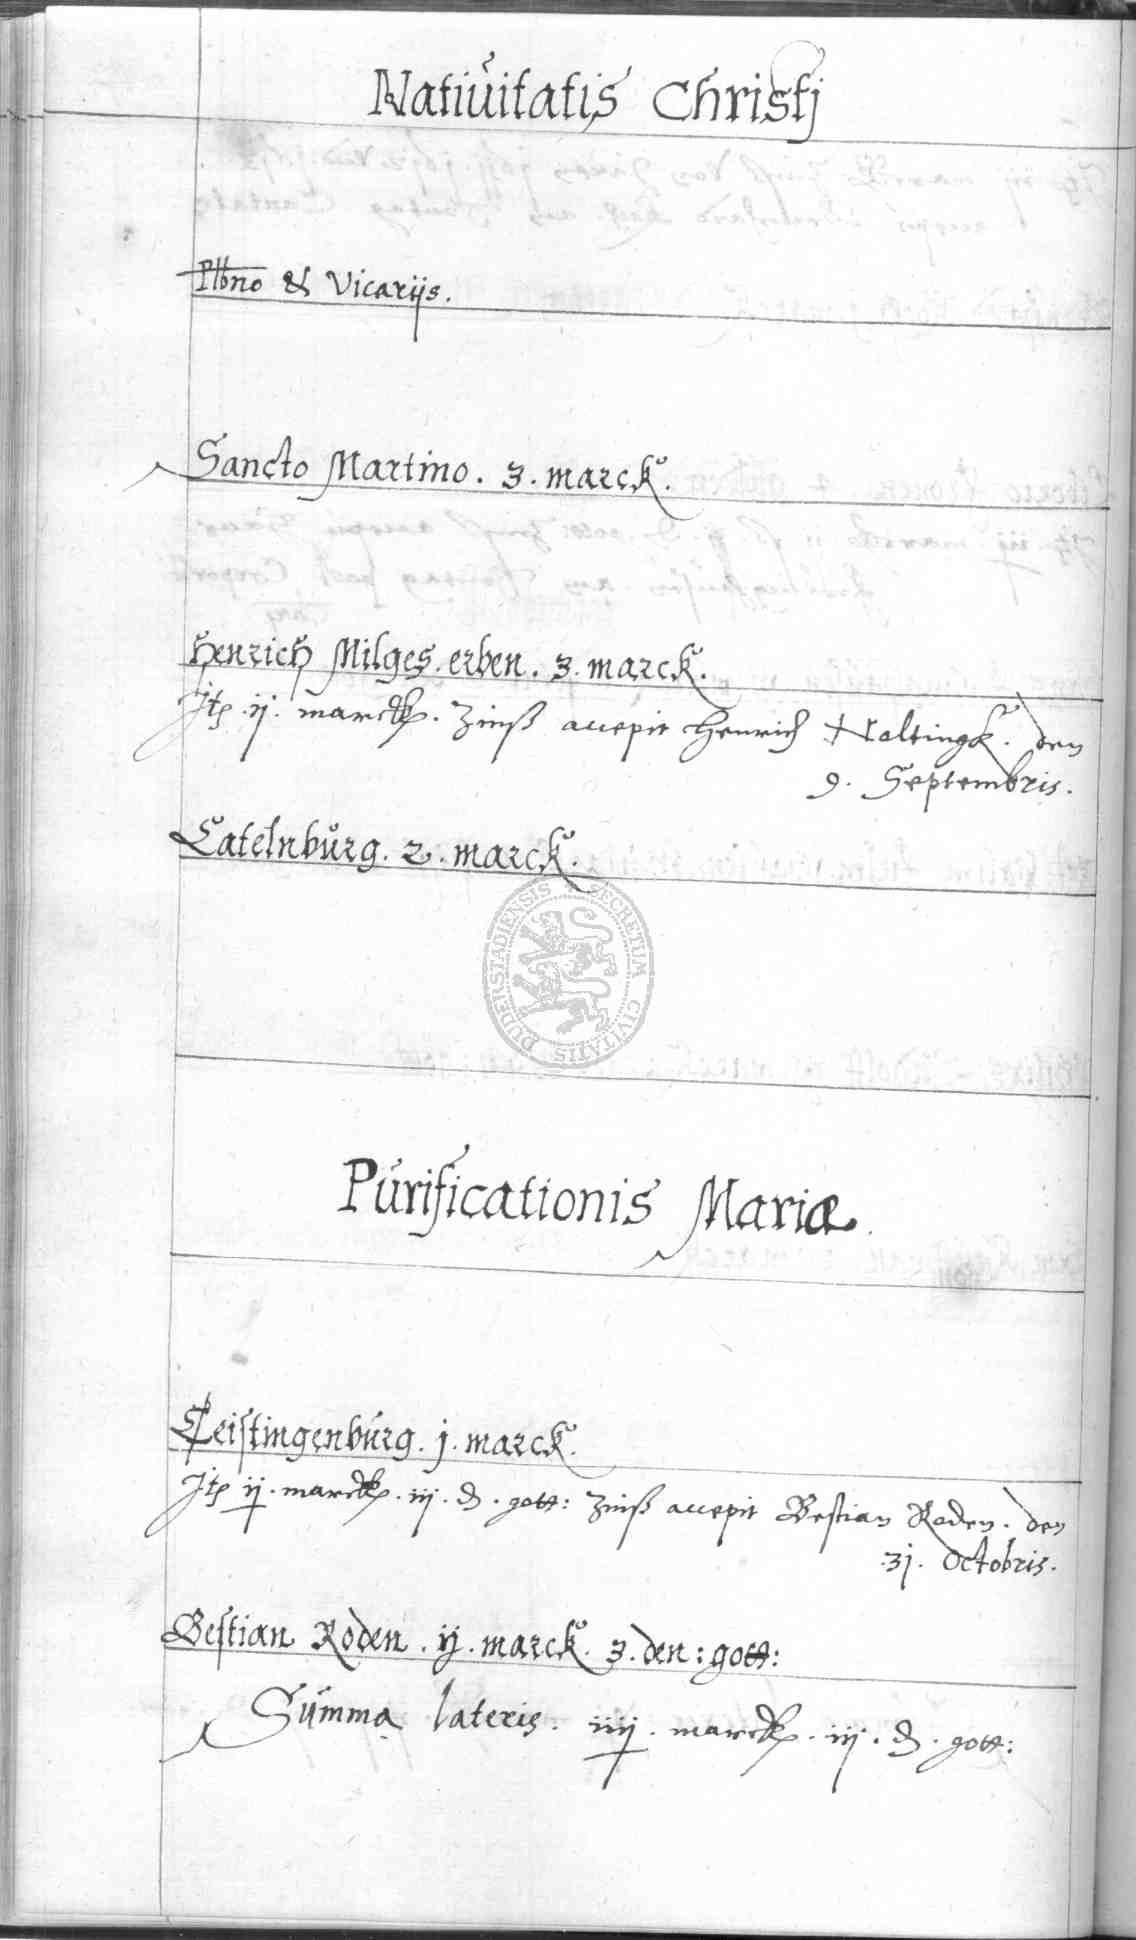 Natiuitatis Christj
Plbno & Vicarijs.
Sancto Martino. 3. marck.
Henrich Milges. erben. 3. marck.
Jtp .ij. marck. Zinß accepit Henrich Noltingk. den
9. Septembris.
Catelnburg. 2. marck.
SECRETUM CIVITATIS DUDERSTADIENSIS
Purificationis Mariæ.
Teistingenburg. j. marck.
Jtp ij. marck. iij. d. gott: Zinß accepit Bestian Roden. den
31. Octobris.
Bestian Roden. ij. marck. 3. den: gott:
Summa lateris. iiij. marck. iij. d. gott: